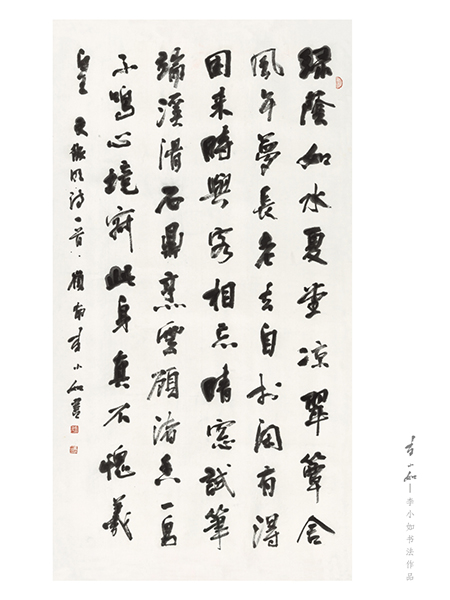 緑蔭如水夏堂凉翠簟含
風午夢長老去自於閑有得
困来時與客相忘晴窓試筆
端溪滑石鼎烹雲顧渚香一鳥
不鳴心境寂此身真不愧羲
皇 文徵明詩一首 嶺南李小如書
李小如—李小如书法作品